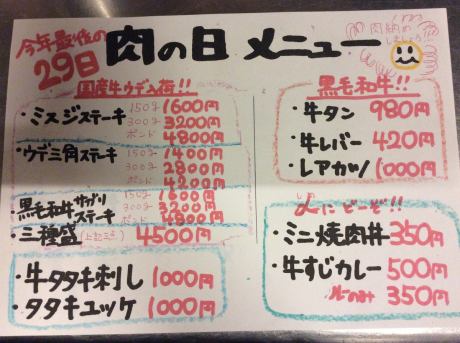 今年最後の
29日
肉の日メニュー
肉納め
しましょう!
国産牛ウデ入荷!!
・ミスジステーキ 150g 1600円
300g 3200円
ポンド 4800円
・ウデ三角ステーキ 150g 1400円
300g 2800円
ポンド 4200円
・黒毛和牛サブリステーキ 150g 1600円
300g 3200円
ポンド 4800円
・三種盛 (上記三点) 4500円
・牛タタキ刺し 1000円
・タタキユッケ 1000円
黒毛和牛!!
・牛タン 980円
・牛レバー 420円
・レアカツ 1000円
〆にどーぞ!!
・ミニ焼肉丼 350円
・牛すじカレー 500円
ルーのみ 350円